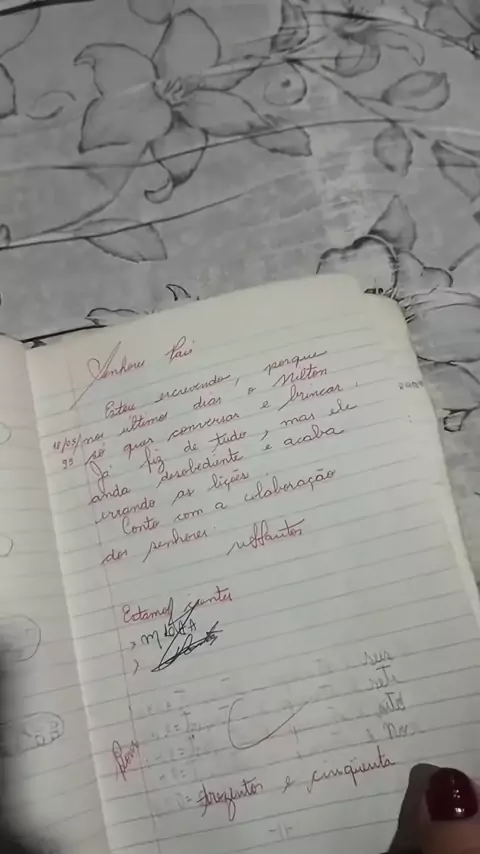 Senhores Pais
Estou escrevendo, porque
18/05/99 nos últimos dias o Nilton
só quer conversar e brincar.
Já fiz de tudo, mas ele
anda desobediente e acaba
errando as lições.
Conto com a colaboração
dos senhores.
Estamos cientes
seis
sete
oito
trezentos e cinqüenta